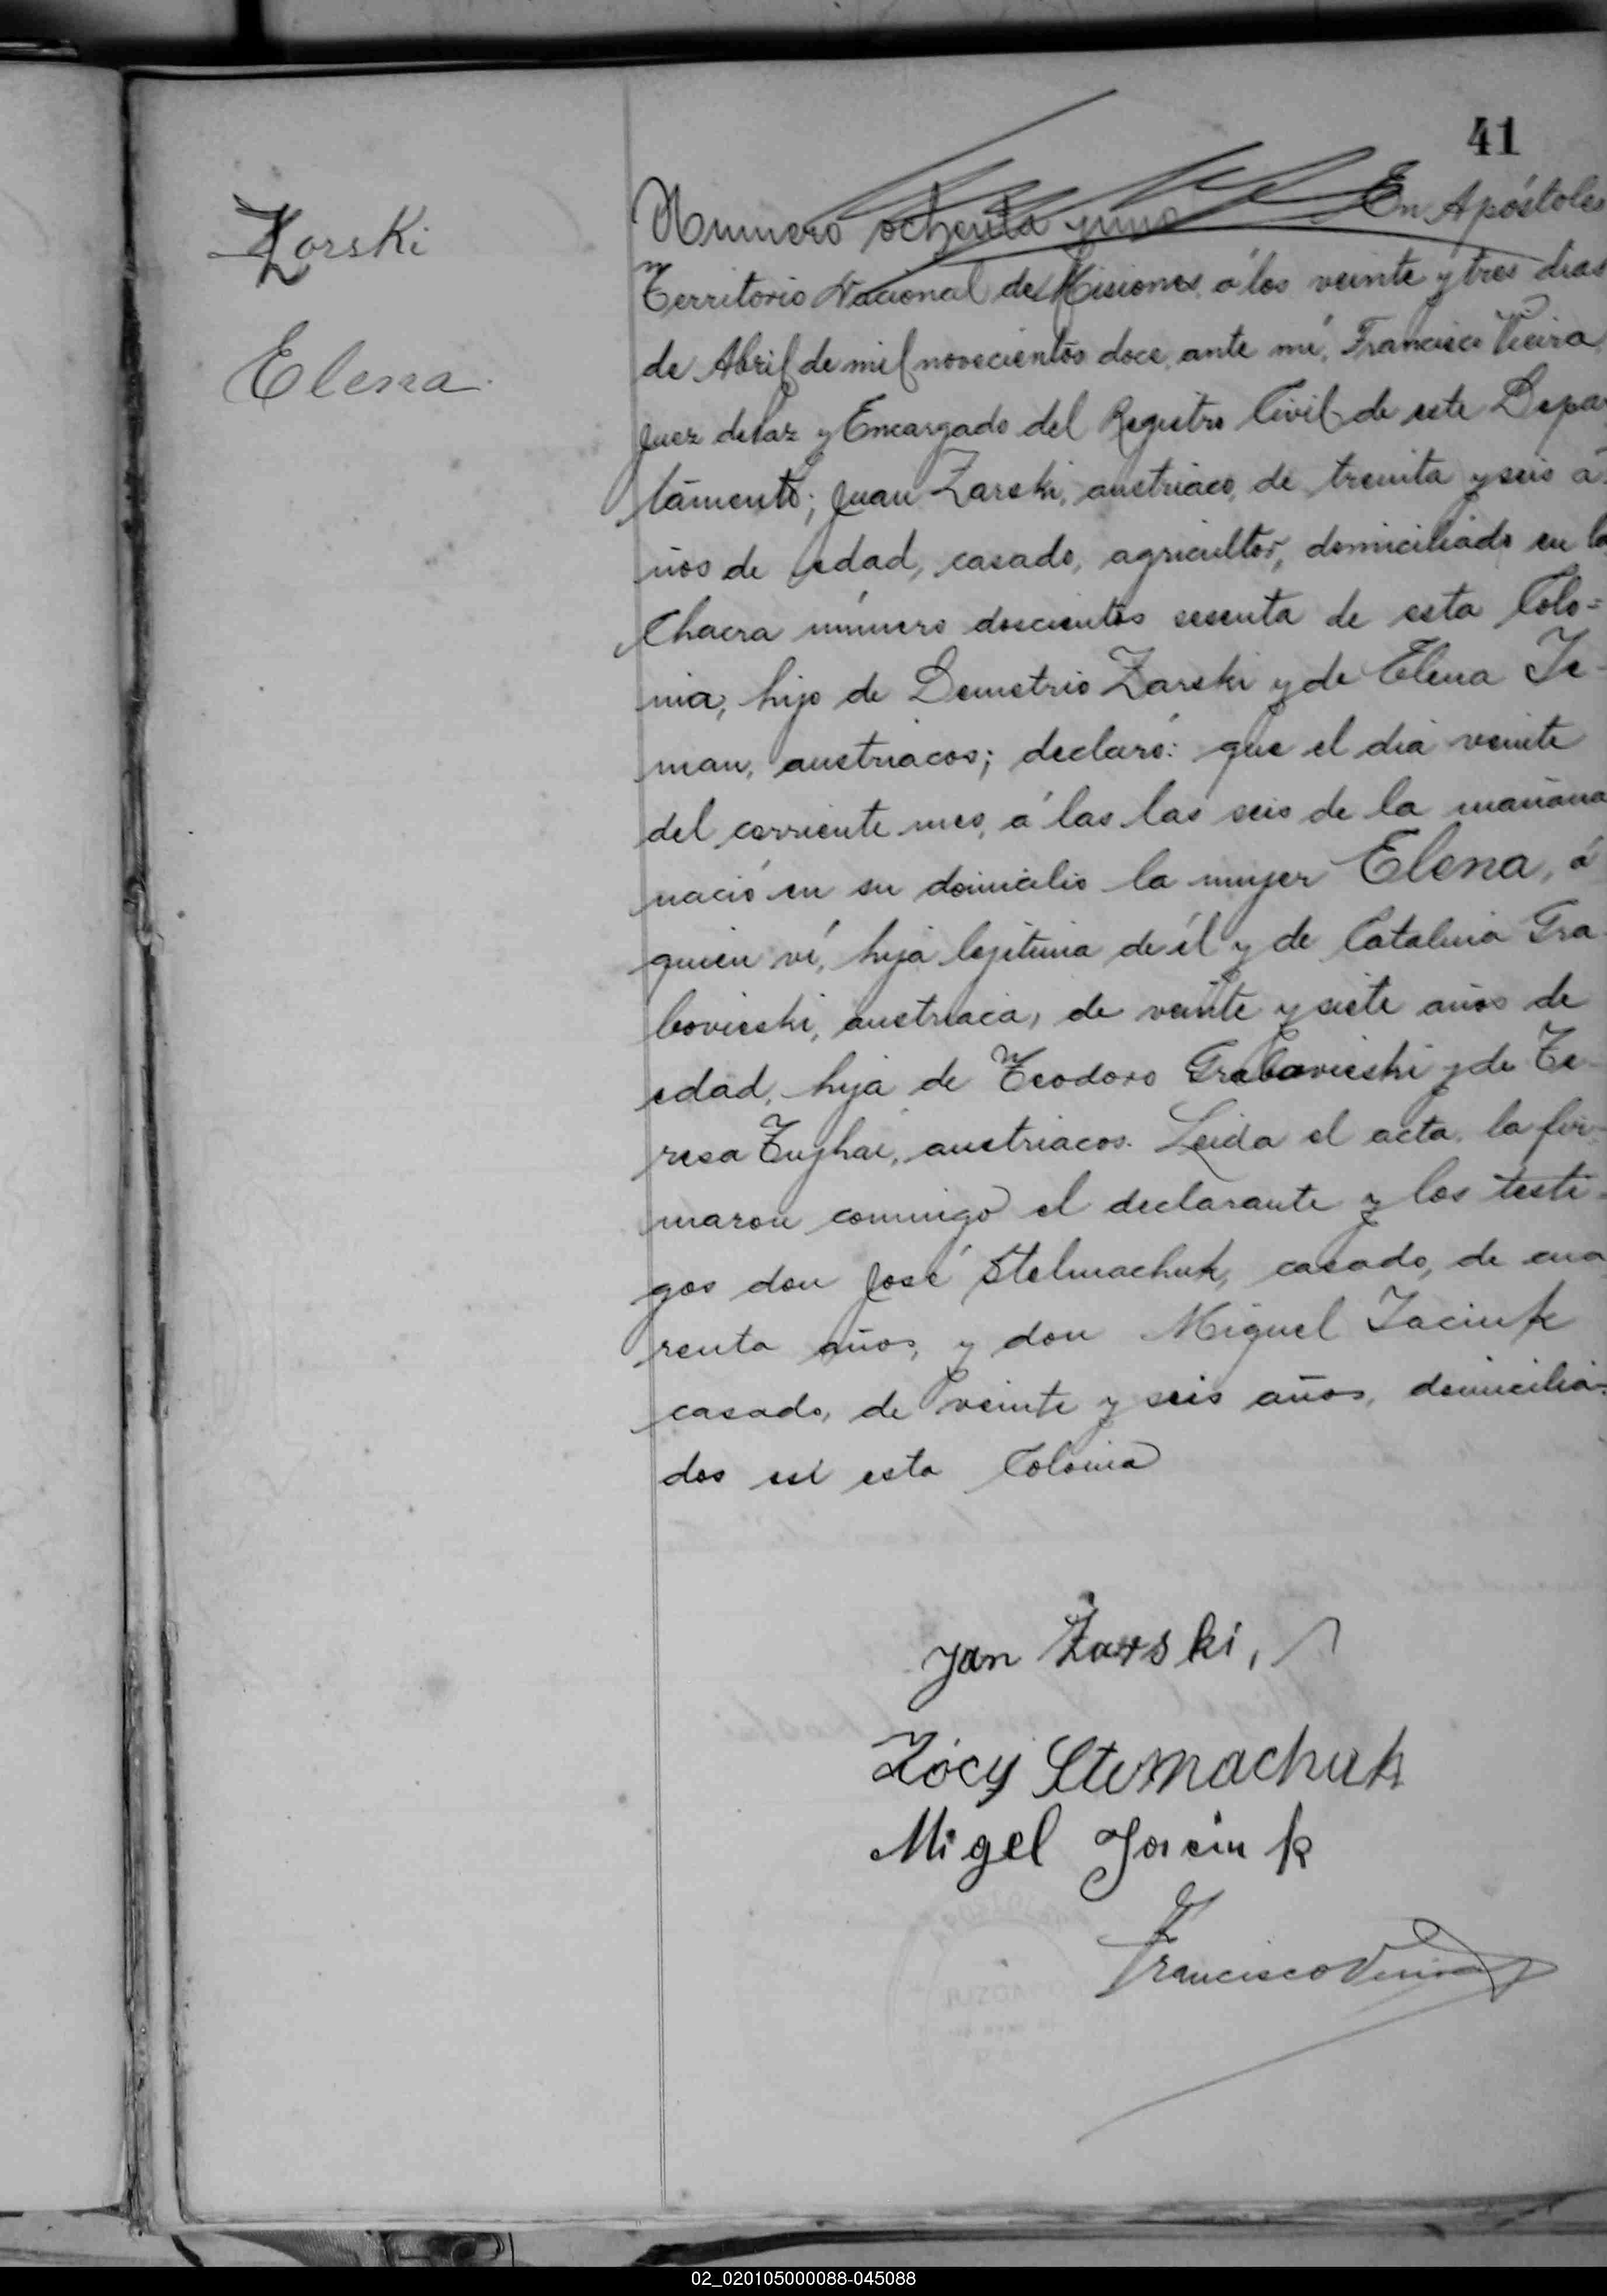 41
Zorski
Elena.
Numero ochenta y uno En Apóstoles
Territorio Nacional de Misiones, á los veinte y tres dias
de Abril de mil novecientos doce, ante mi, Francisco Vieira
Juez de Paz y Encargado del Registro Civil de este Depar
tamento; Juan Zarski, austriaco, de treinta y seis a-
ños de edad, casado, agricultor, domiciliado en la
Chacra número doscientos sesenta de esta Colo=
nia, hijo de Demetrio Zarski y de Elena Je-
man, austriacos; declaró: que el dia veinte
del corriente mes, á las las seis de la mañana
nació en su domicilio la mujer Elena, á
quien ví, hija lejitima de él y de Catalina Gra
bovieski, austriaca, de veinte y siete años de
edad, hija de Teodoro Grabovieski y de Te-
resa, austriacos. Leida el acta, la fir-
maron conmigo el declarante y los testi-
gos don José Stelmachuk, casado, de cua
renta años, y don Miguel Jaciuk
casado, de veinte y seis años, domicilia-
dos en esta Colonia
Jan Żarski,
Józy Stemachuk
Migel Jaciuk
Francisco Vieira
02_020105000088-045088